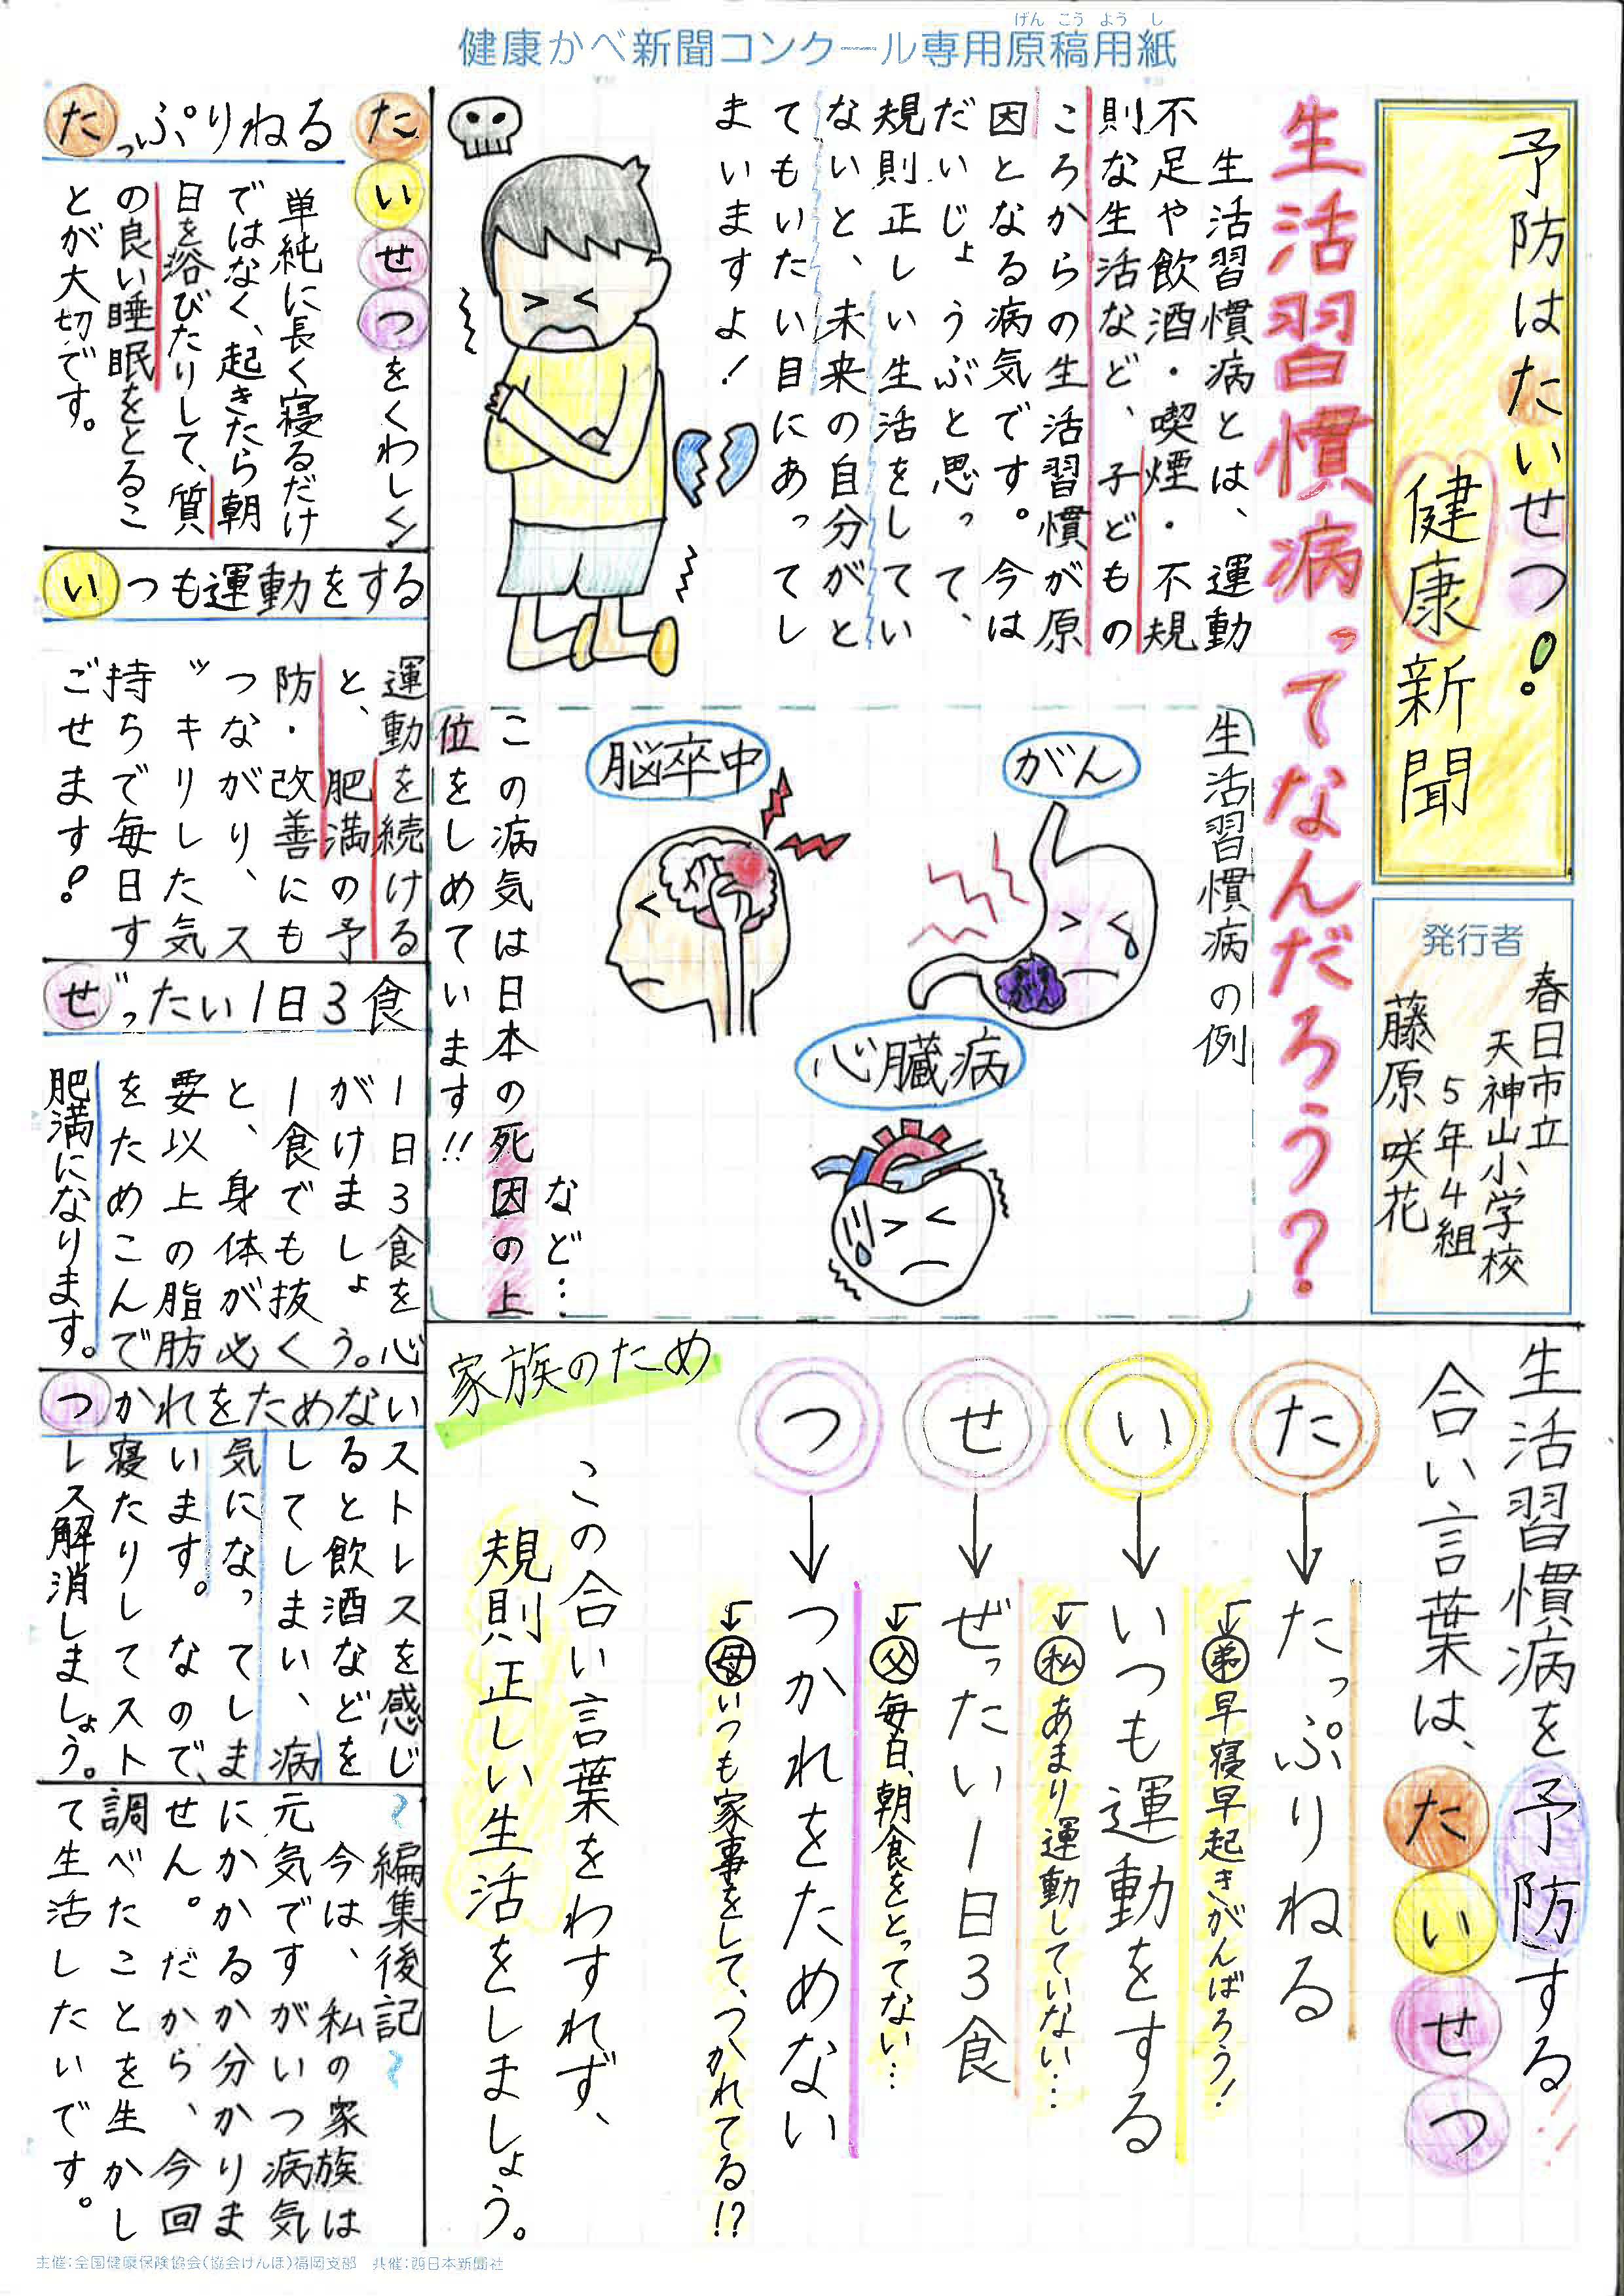 健康かべ新聞コンクール専用原稿用紙
げんこうようし
予防はたいせつ!
健康新聞
発行者
春日市立
天神山小学校
5年4組
藤原咲花
生活習慣病ってなんだろう?
生活習慣病とは、運動
不足や飲酒・喫煙・不規
則な生活など、子どもの
ころからの生活習慣が原
因となる病気です。今は
だいじょうぶと思って、
規則正しい生活をしてい
ないと、未来の自分がと
てもいたい目にあってし
まいますよ!
生活習慣病の例
がん
がん
脳卒中
心臓病
など…
この病気は日本の死因の上
位をしめています!!
生活習慣病を予防する
合い言葉は、たいせつ!!
た→たっぷりねる
←弟早寝早起きがんばろう!
い→いつも運動をする
←私あまり運動していない…
せ→ぜったい1日3食
←父毎日、朝食をとってない…
つ→つかれをためない
←母いつも家事をして、つかれてる!?
家族のため
この合い言葉をわすれず、
規則正しい生活をしましょう。
たいせつをくわしく
たっぷりねる
単純に長く寝るだけ
ではなく、起きたら朝
日を浴びたりして、質
の良い睡眠をとるこ
とが大切です。
いつも運動をする
運動を続ける
と、肥満の予
防・改善にも
つながり、ス
ッキリした気
持ちで毎日す
ごせます!
ぜったい1日3食
1日3食を心
がけましょう。
1食でも抜く
と、身体が必
要以上の脂肪
をためこんで
肥満になります。
つかれをためない
ストレスを感じ
ると飲酒などを
してしまい、病
気になってしま
います。なので、
寝たりしてスト
レス解消しましょう。
~編集後記~
今は、私の家族は
元気ですがいつ病気
にかかるか分かりま
せん。だから、今回
調べたことを生かし
て生活したいです。
主催:全国健康保険協会(協会けんぽ)福岡支部 共催:西日本新聞社